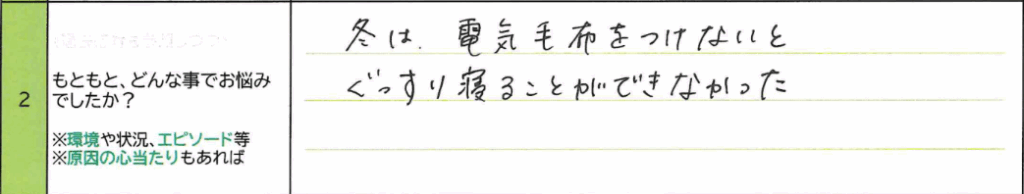 2
もともと、どんな事でお悩み
でしたか？
※環境や状況、エピソード等
※原因の心当たりもあれば
冬は、電気毛布をつけないと
ぐっすり寝ることができなかった